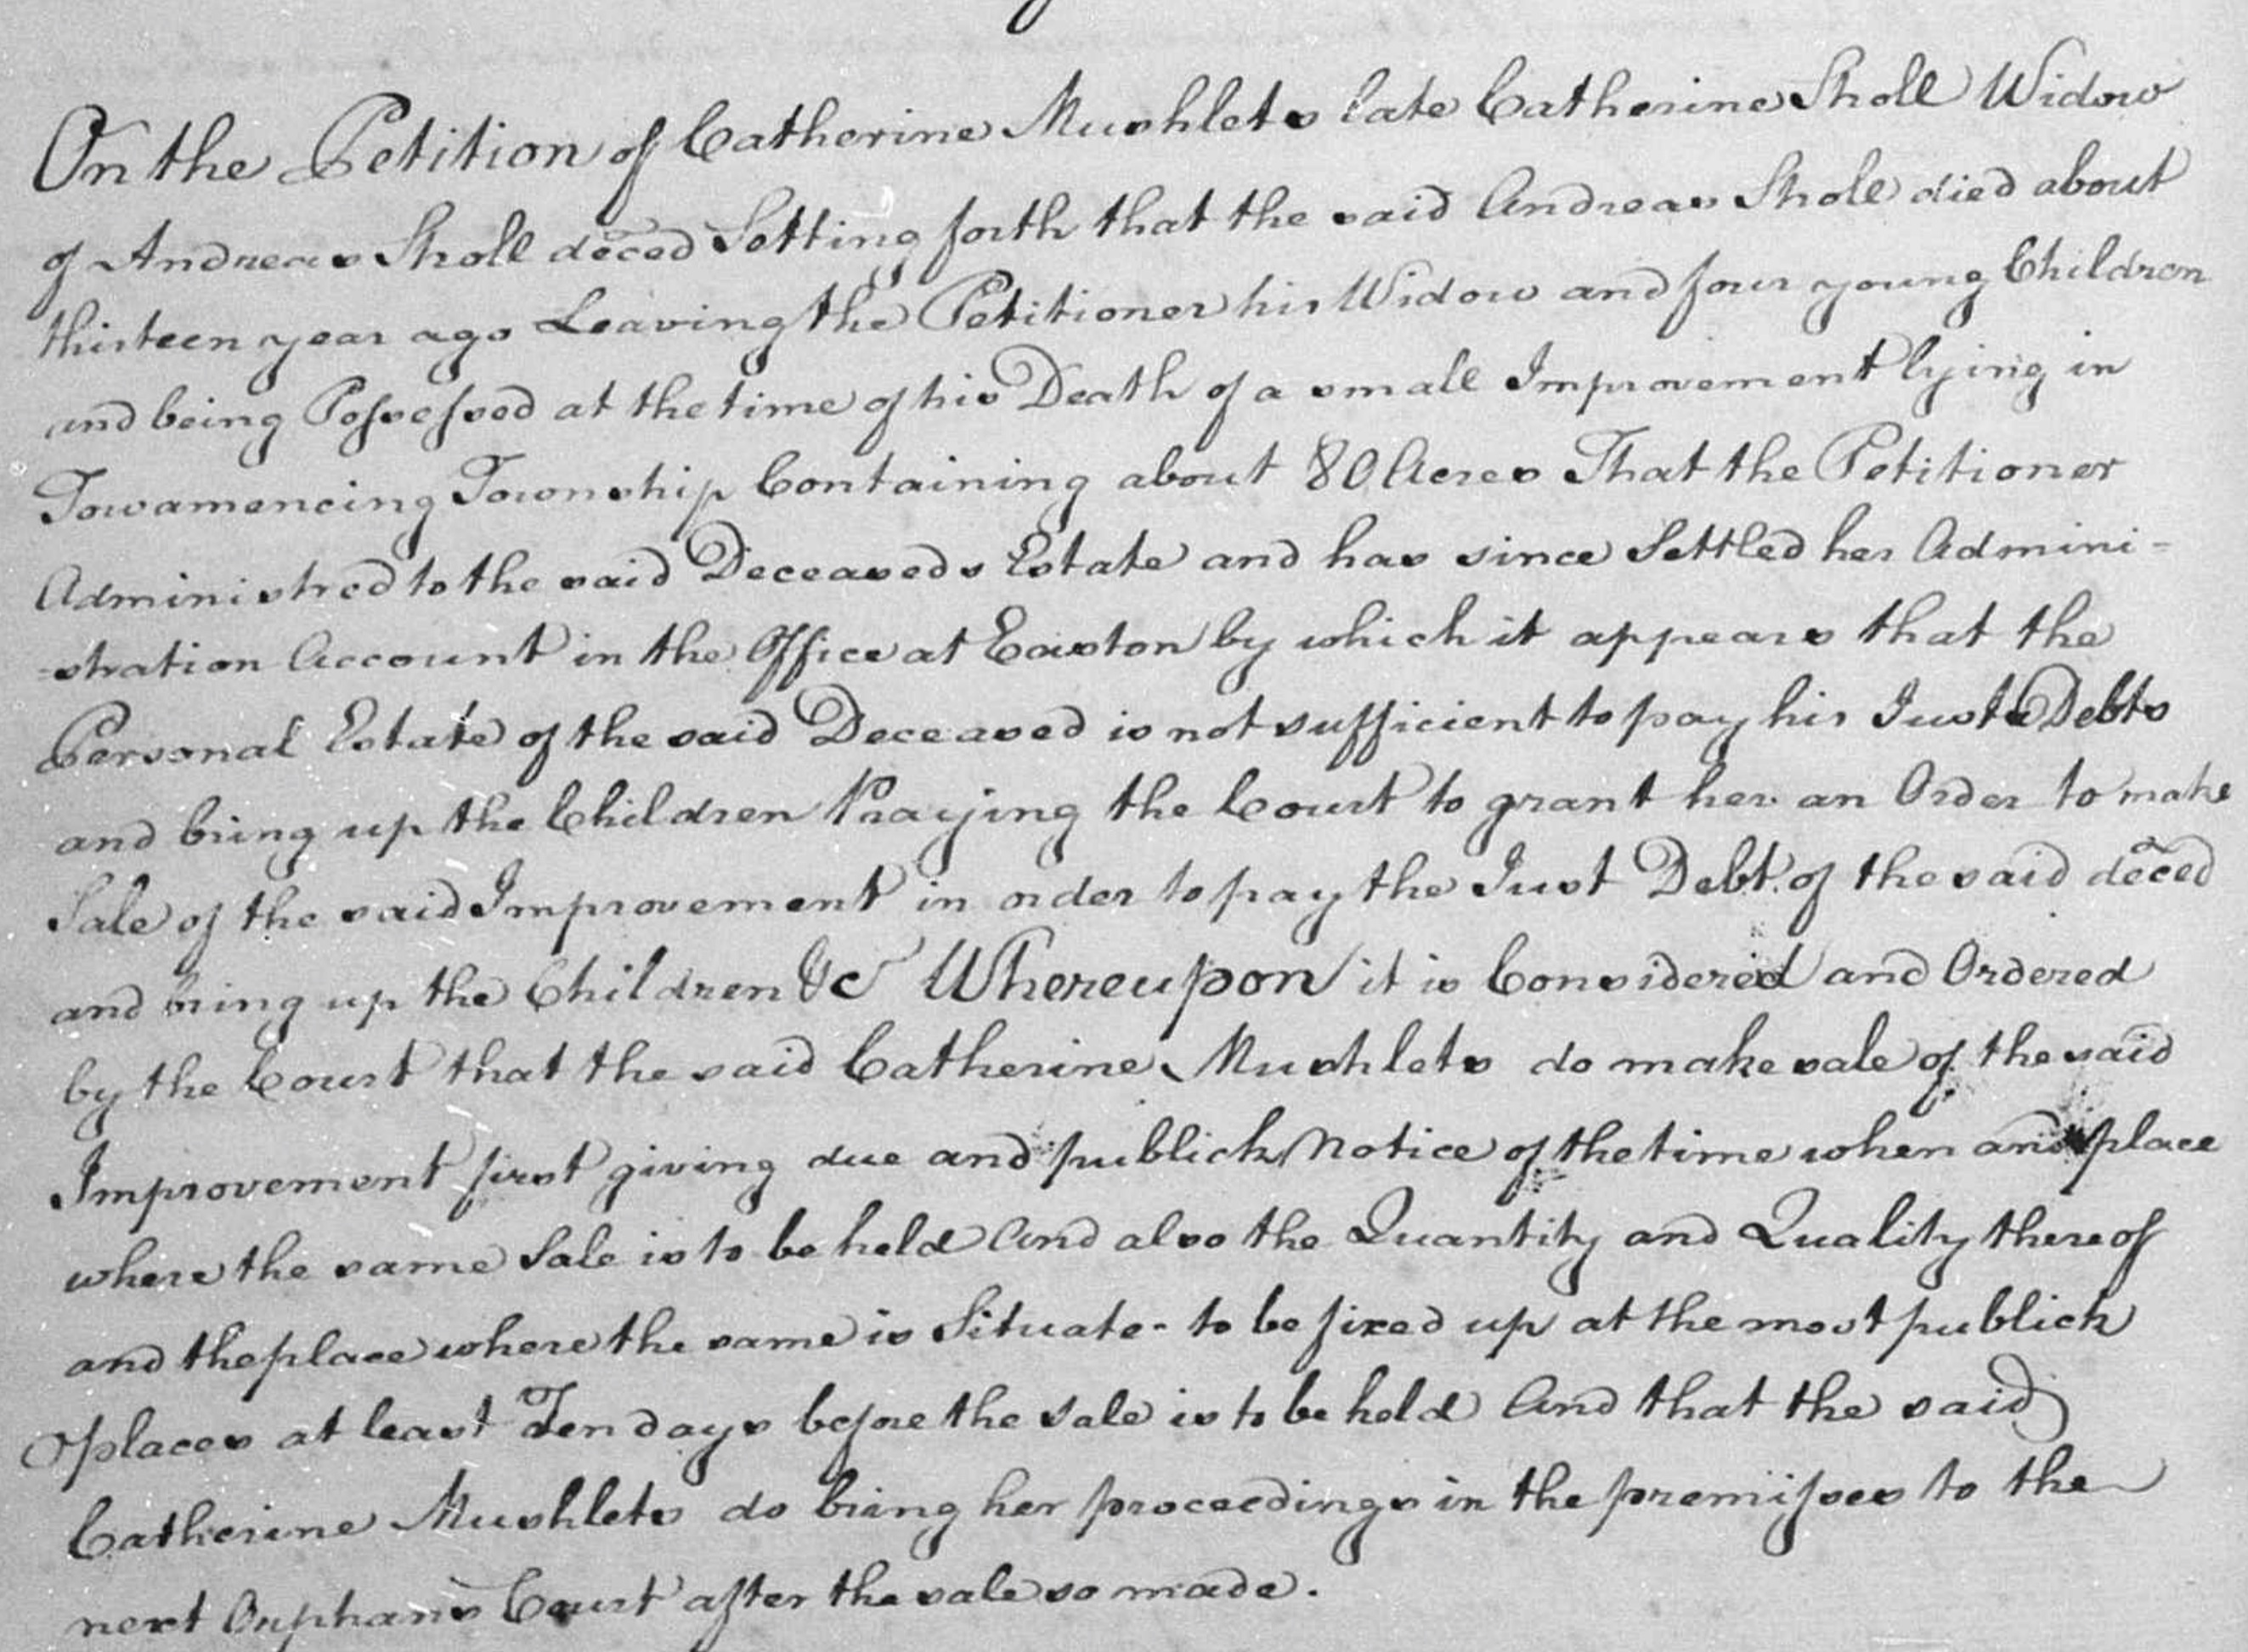 On the Petition of Catherine Mushlets late Catherine Sholl Widow
of Andreas Sholl deced Setting forth that the said Andreas Sholl died about
thirteen year ago Leaving the Petitioner his Widow and four young Children
and being Possessed at the time of his Death of a small Improvement lying in
Towamencing Township Containing about 80 Acres That the Petitioner
Administred to the said Deceaseds Estate and has since Settled her Admini=
=stration Account in the Office at Easton by which it appears that the
Personal Estate of the said Deceased is not sufficient to pay his Just Debts
and bring up the Children Praying the Court to grant her an Order to make
Sale of the said Improvement in order to pay the Just Debt of the said deced
and bring up the Children &c Whereupon it is Considered and Ordered
by the Court that the said Catherine Mushlets do make sale of the said
Improvement first giving due and publick Notice of the time when and place
where the same Sale is to be held And also the Quantity and Quality thereof
and the place where the same is Situate - to be fixed up at the most publick
places at least Ten days before the Sale is to be held And that the said
Catherine Mushlets do bring her proceedings in the premisses to the
next Orphans Court after the sale so made.